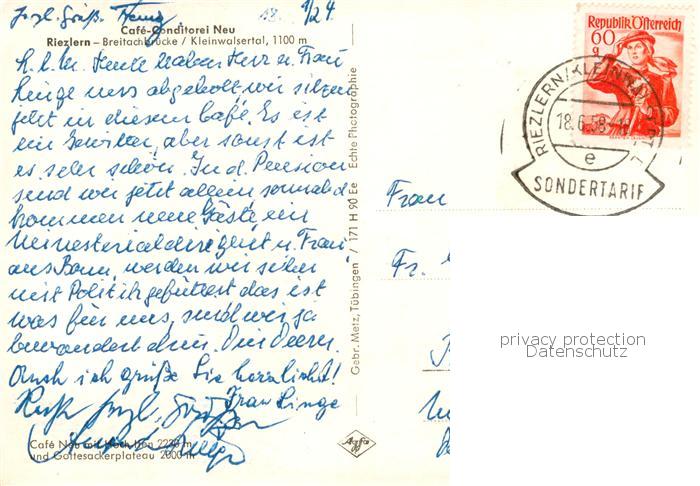 Herzl. Grüße
Café-Conditorei Neu
Riezlern – Breitachbrücke / Kleinwalsertal, 1100 m
Heute haben Herr u. Frau
Linge uns abgeholt wir sitzen
jetzt in diesem Café. Es ist
ein Gewitter, aber sonst ist
es sehr schön. In d. Pension
sind wir jetzt allein, sonnabd
kommen neue Gäste ein
Ministerialdirigent u. Frau
aus Bonn, werden wir sicher
mit Politik gefüttert das ist
was für uns, sind wir ja
bewandert drin.
Auch ich grüße Sie herzlichst!
Frau Linge
Café Neu mit Hoch Ifen 2230 m
und Gottesackerplateau 2000 m
Gebr. Metz, Tübingen / 171 H 90 Ee Echte Photographie
Agfa
Republik Österreich
60
g
RIEZLERN/KLEINWALSERTAL
18.6.58
e
SONDERTARIF
Frau
Fr.
privacy protection
Datenschutz